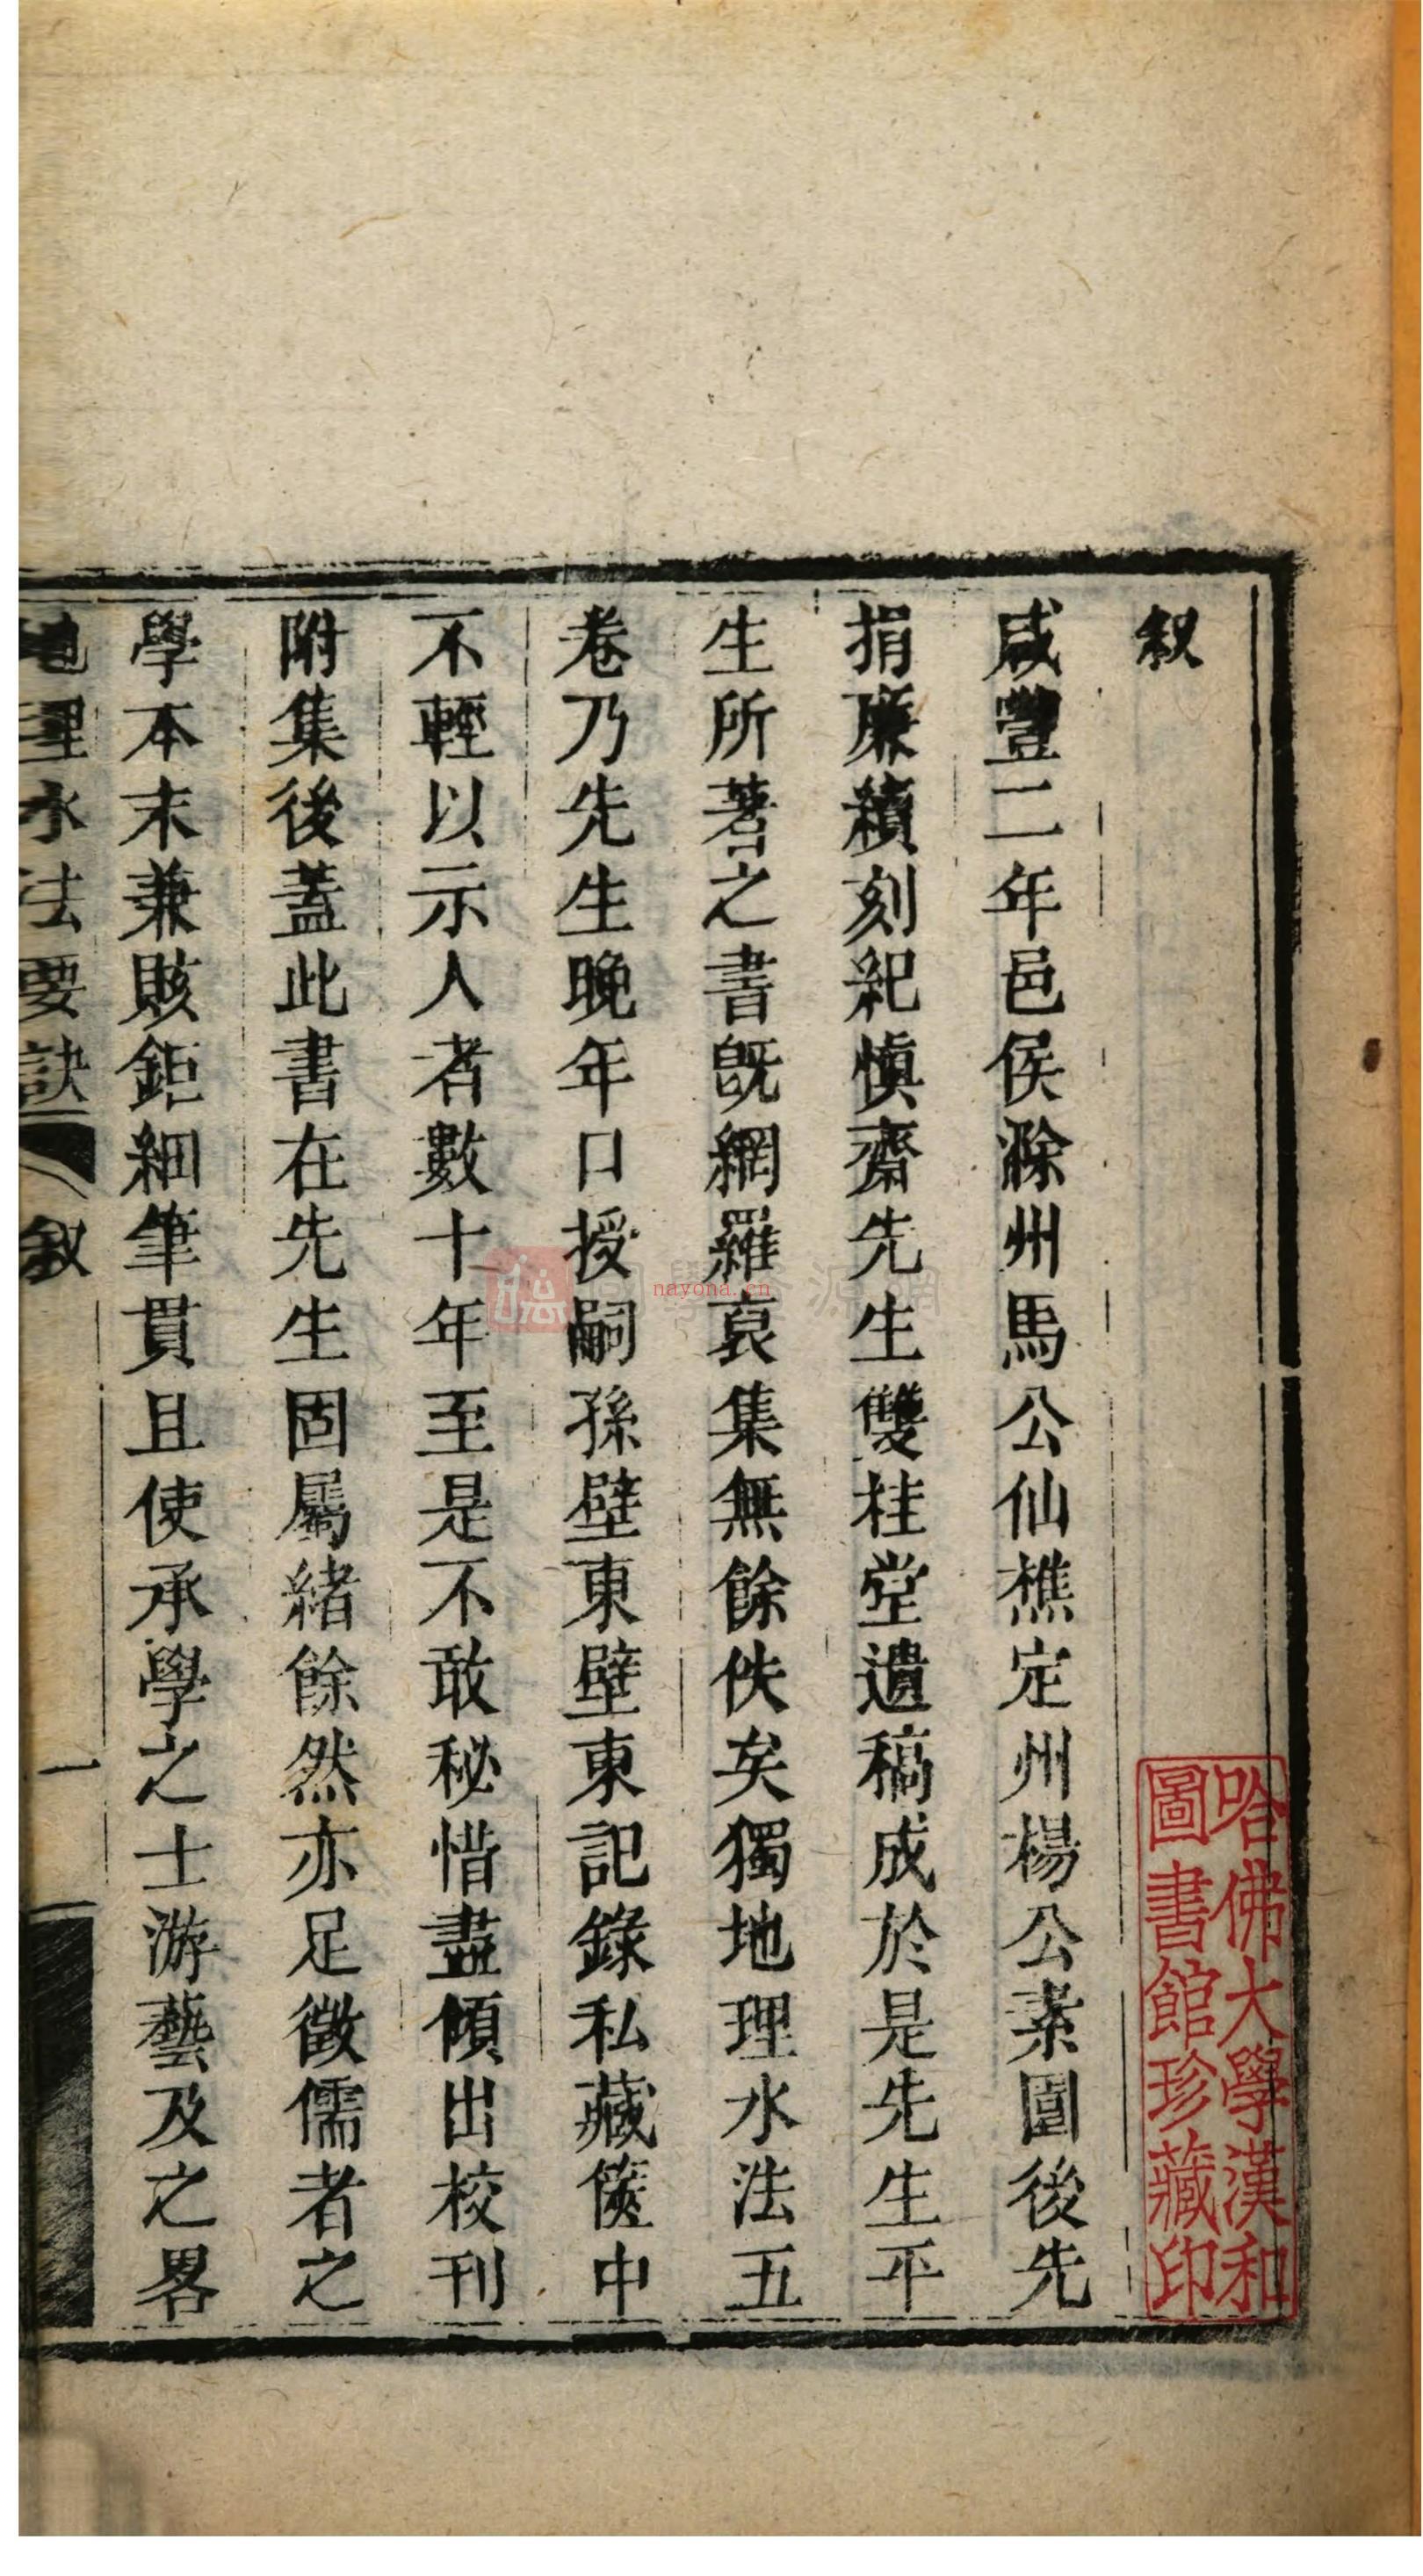 叙
咸豐二年邑侯滁州馬公仙樵定州楊公素園後先
捐廉續刻紀慎齋先生雙桂堂遺稿成於是先生平
生所著之書旣網羅裒集無餘佚矣獨地理水法五
卷乃先生晚年口授嗣孫壁東壁東記錄私藏篋中
不輕以示人者數十年至是不敢秘惜盡傾出校刊
附集後蓋此書在先生固屬緒餘然亦足徵儒者之
學本末兼賅鉅細畢貫且使承學之士游藝及之畧
地理水法要訣 叙 一
哈佛大學漢和
圖書館珍藏印
國學資源網
nayona.cn